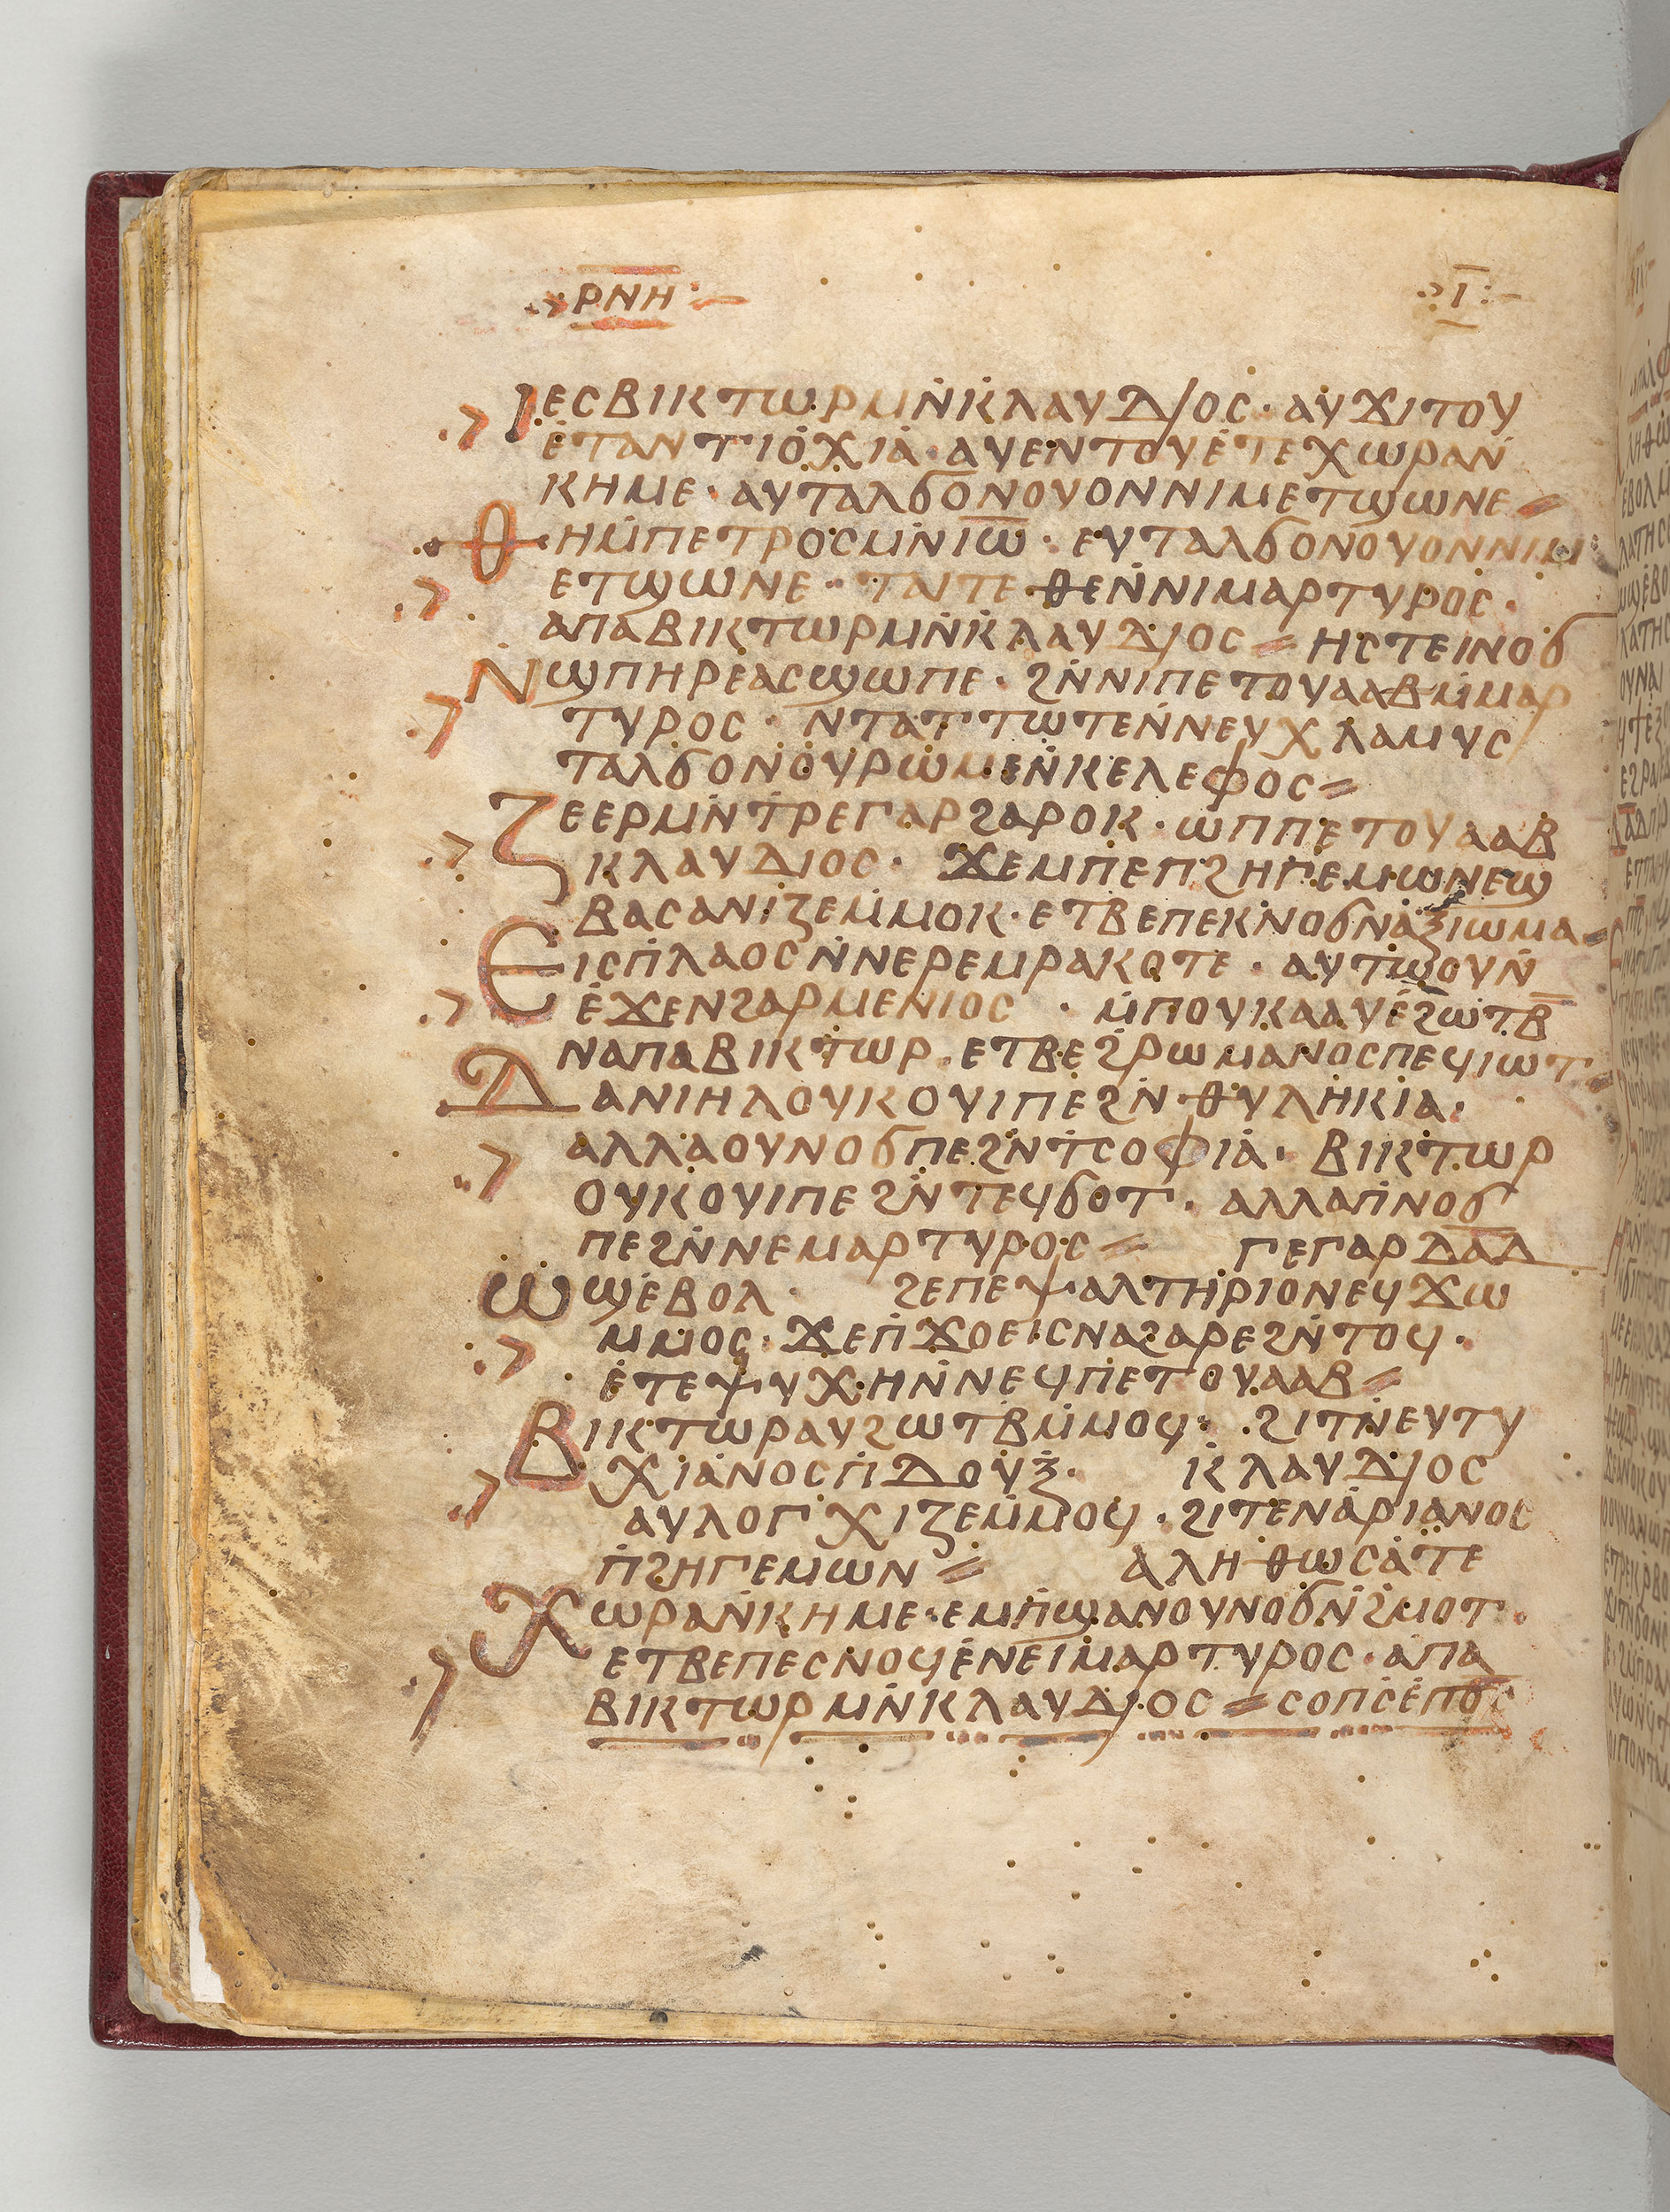 ⲣⲛⲏ ⲓ̅
ⲓⲉⲥⲃⲓⲕⲧⲱⲣⲙⲛ̇ⲕ̇ⲗⲁⲩⲇⲓⲟⲥ · ⲁⲩϫⲓⲧⲟⲩ
ⲉ̇ⲧⲁⲛⲧⲓⲟ̇ⲭⲓⲁ̇ · ⲁⲩⲉⲛⲧⲟⲩⲉ̇ⲧⲉⲭⲱⲣⲁⲛ̇
ⲕⲏⲙⲉ · ⲁⲩⲧⲁⲗϭⲟⲛⲟⲩⲟⲛⲛⲓⲙⲉⲧϣⲱⲛⲉ ⸗
ⲑⲏⲙ̇ⲡⲉⲧⲣⲟⲥⲙⲛ̇ⲓ̅ⲱ̅ · ⲉⲩⲧⲁⲗϭⲟⲛⲟⲩⲟⲛⲛⲓⲙ
ⲉⲧϣⲱⲛⲉ · ⲧⲁⲓⲧⲉ ⲑⲉⲛ̇ⲛⲓⲙⲁⲣⲧⲩⲣⲟⲥ ·
ⲁⲡⲁⲃⲓⲕⲧⲱⲣⲙⲛ̇ⲕ̇ⲗⲁⲩⲇⲓⲟⲥ ⸗ ⲏⲥⲧⲉⲓⲛⲟϭ
ⲛ̇ϣⲡⲏⲣⲉⲁⲥϣⲱⲡⲉ · ϩⲛ̇ⲛⲓⲡⲉⲧⲟⲩⲁⲁⲃⲙ̇ⲙⲁⲣ
ⲧⲩⲣⲟⲥ · ⲛⲧⲁⲧⲧⲱⲧⲉⲛ̇ⲛⲉⲩⲭⲗⲁⲙⲩⲥ
ⲧⲁⲗϭⲟⲛ̇ⲟⲩⲣⲱⲙⲉⲛ̇ⲕⲉⲗⲉⲫⲟⲥ ⸗
ⲍⲉⲉⲣⲙⲛ̇ⲧⲣⲉⲅⲁⲣϩⲁⲣⲟⲕ · ⲱⲡⲡⲉⲧⲟⲩⲁⲁⲃ
ⲕⲗⲁⲩⲇⲓⲟⲥ · ϫⲉⲙⲡⲉⲡϩⲏⲅⲉⲙⲱⲛⲉϣ
ⲃⲁⲥⲁⲛⲓⲍⲉⲙ̇ⲙⲟⲕ · ⲉⲧⲃⲉⲡⲉⲕⲛⲟϭⲛⲁ̇ⲝⲓⲱⲙⲁ ⸗
ⲉⲓⲥⲡ̇ⲗⲁⲟⲥⲛ̇ⲛⲉⲣⲉⲙⲣⲁⲕⲟⲧⲉ · ⲁⲩⲧϣⲟⲩⲛ̇
ⲉ̇ϫⲉⲛϩⲁⲣⲙⲉⲛⲓⲟⲥ · ⲙ̇ⲡⲟⲩⲕⲁⲁⲩⲉ̇ϩⲱⲧⲃ̅
ⲛⲁⲡⲁⲃⲓⲕⲧⲱⲣ · ⲉⲧⲃⲉϩⲣⲱⲙⲁⲛⲟⲥⲡⲉϥⲓⲱⲧ ⸗
ⲇⲁⲛⲓⲏⲗⲟⲩⲕⲟⲩⲓⲡⲉϩⲛ̇ ⲑⲩⲗⲏⲕⲓⲁ ·
ⲁⲗⲗⲁⲟⲩⲛⲟϭⲡⲉϩⲛ̇ⲧⲥⲟⲫⲓⲁ̇ · ⲃⲓⲕⲧⲱⲣ
ⲟⲩⲕⲟⲩⲓⲡⲉϩⲛ̇ⲧⲉϥϭⲟⲧ · ⲁⲗⲗⲁⲡ̇ⲛⲟϭ
ⲡⲉϩⲛ̇ⲛⲉⲙⲁⲣⲧⲩⲣⲟⲥ ⸗ ⲅⲉⲅⲁⲣ ⲇⲁ̅ⲇ̅
ⲱϣⲉ̇ⲃⲟⲗ · ϩⲉⲡⲉⲯⲁⲗⲧⲏⲣⲓⲟⲛⲉϥϫⲱ
ⲙⲙⲟⲥ · ϫⲉⲡ̇ϫⲟⲉⲓⲥⲛⲁϩⲁⲣⲉϩⲛ̇ⲧⲟϥ ·
ⲉ̇ⲧⲉⲯⲩⲭⲏⲛ̇ⲛⲉϥⲡⲉⲧⲟⲩⲁⲁⲃ ⸗
ⲃⲓⲕⲧⲱⲣⲁⲩϩⲱⲧⲃⲙ̇ⲙⲟϥ · ϩⲓⲧⲛ̇ⲉⲩⲧⲩ
ⲭⲓⲁ̇ⲛⲟⲥⲡ̇ⲇⲟⲩⲝ · ⲕ̇ⲗⲁⲩⲇⲓⲟⲥ
ⲁⲩⲗⲟⲅⲭⲓⲍⲉⲙ̇ⲙⲟϥ · ϩⲓⲧⲉⲛⲁ̇ⲣⲓⲁⲛⲟⲥ
ⲡ̇ϩⲏⲅⲉⲙⲱⲛ ⸗ ⲁⲗⲏⲑⲱⲥⲁ̇ⲧⲉ
ⲭⲱⲣⲁⲛ̇ⲕⲏⲙⲉ · ⲉⲙⲡ̇ϣⲁⲛⲟⲩⲛⲟϭⲛ̇ϩⲙⲟⲧ ·
ⲉⲧⲃⲉⲡⲉⲥⲛⲟϥⲉ̇ⲛⲉⲓⲙⲁⲣⲧⲩⲣⲟⲥ · ⲁⲡⲁ
ⲃⲓⲕⲧⲱⲣⲙⲛ̇ⲕⲗⲁⲩⲇⲓⲟⲥ ⸗ ⲥⲟⲡⲥⲉ̇ⲡⲟ̅ⲥ̅